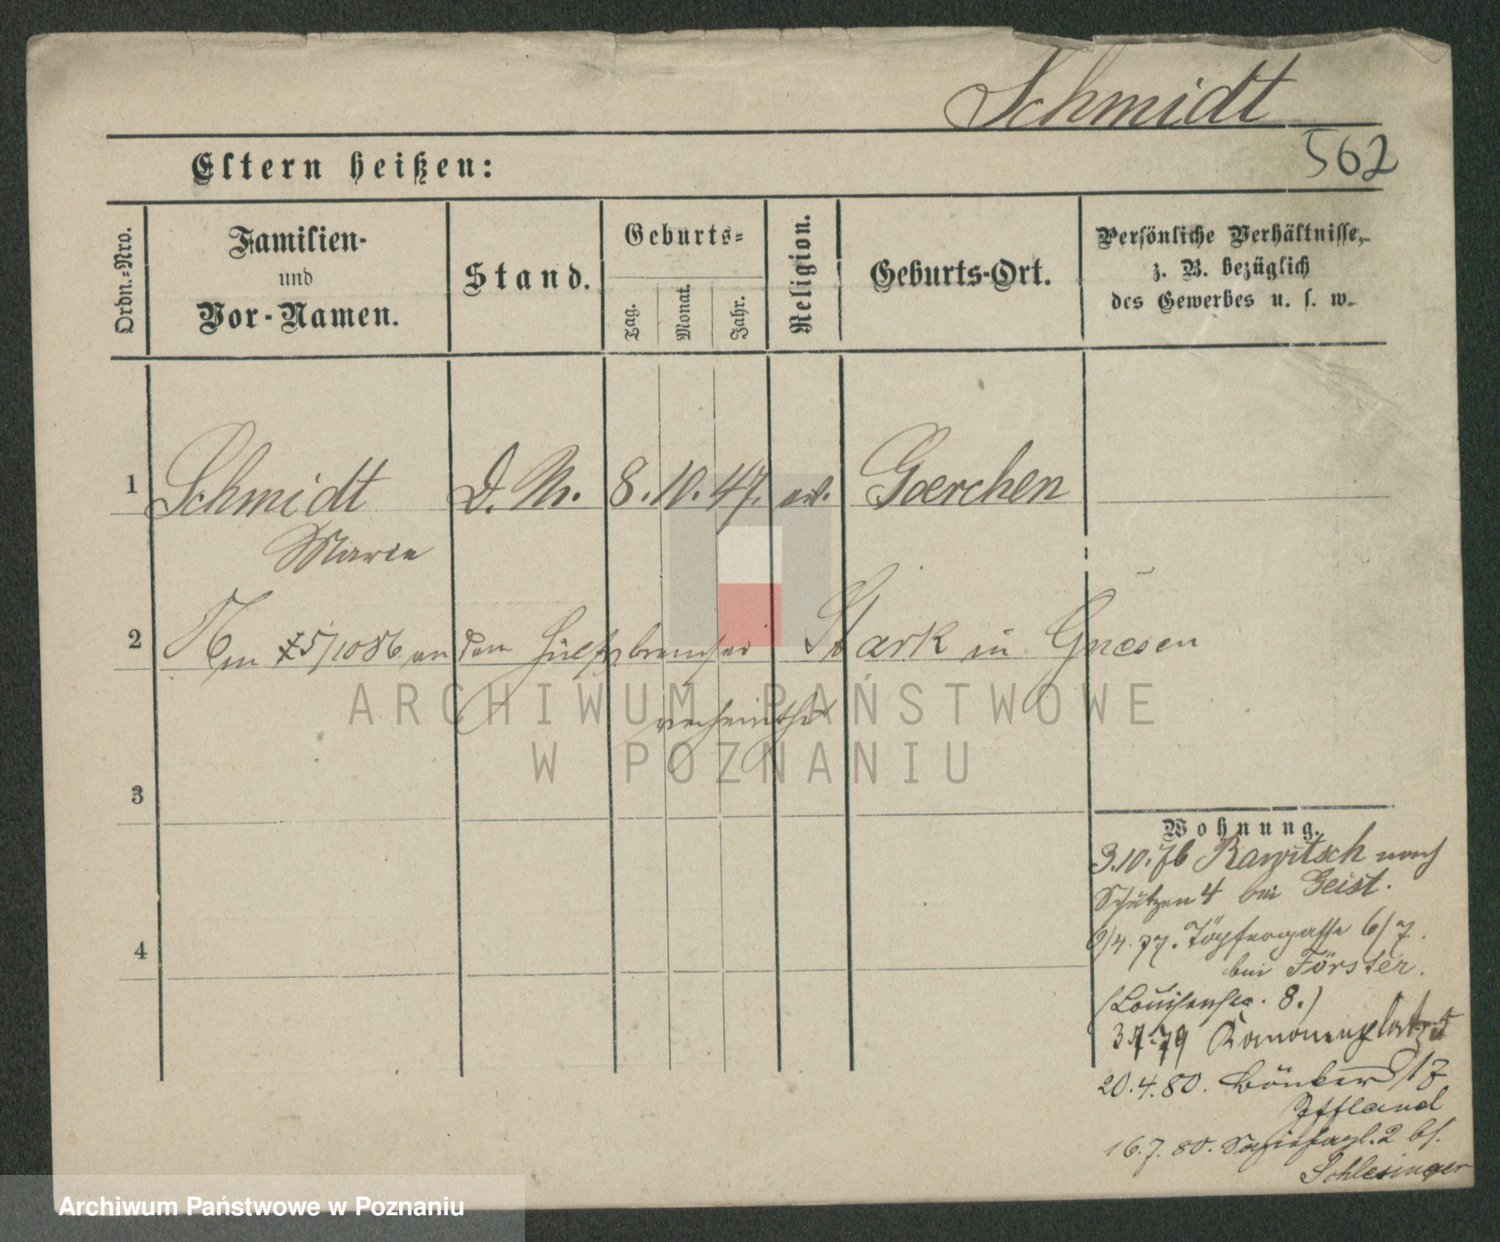 Schmidt
562
Eltern heißen:
Ordn.-Nro.
Familien-
und
Vor-Namen.
Stand.
Geburts-
Tag.
Monat.
Jahr.
Religion.
Geburts-Ort.
Persönliche Verhältnisse,
z. B. bezüglich
des Gewerbes u. s. w.
1 Schmidt D. M. 8. 10. 47. ev. Goerchen
Marie
2 5/10 86 an den Hülfsbremser Stark in Gnesen
verheirathet
3
4
Wohnung.
3.10.76 Rawitsch nach
Schützen 4 bei Geist.
9/4.77. Töpfergasse 6/7.
bei Förster.
(Louisenstr. 8.)
79 Kanonenplatz 5
20.4.80. 17
Iffland
16.7.80. 2 bei
Schlesinger
ARCHIWUM PAŃSTWOWE
W POZNANIU
Archiwum Państwowe w Poznaniu